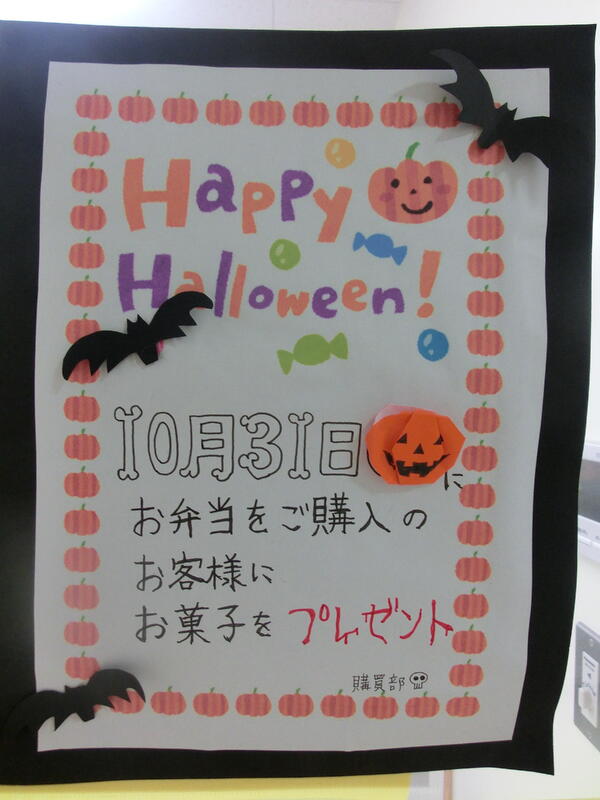 Happy
Halloween!
10月31日に
お弁当をご購入の
お客様に
お菓子をプレゼント
購買部